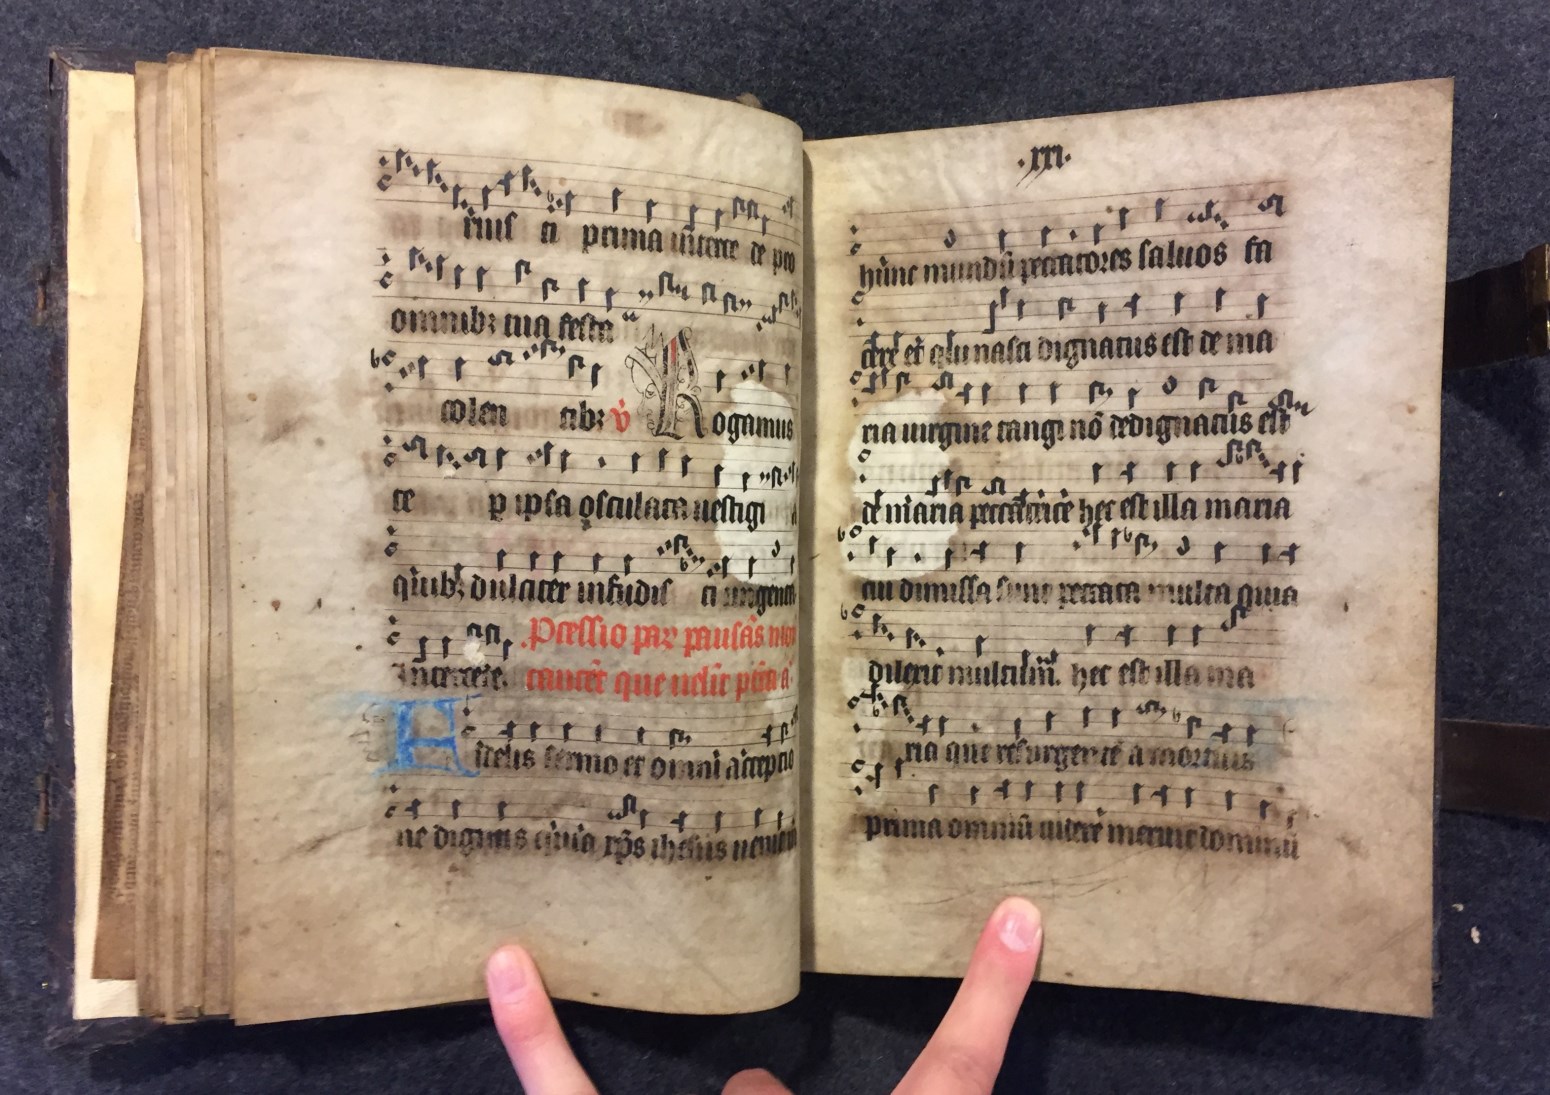 rius ti prima uincere de pec
omnibꝫ tua festa
colen tibꝫ v̓ Rogamus
te p ipsa osculata uestigi a
quibꝫ dulciter infudisti ungenta
Intercede. Pcessio par pausās
cantēt que uelīt
Fidelis sermo et omni acceptio
ne dignus quia xp̄s ihesus
·xxi·
hunc mundū peccatores saluos fa
cere et qui nasci dignatus est de ma
ria uirgine tangi nō dedignatus est
a maria peccatrice hec est illa maria
cui dimissa sunt peccata multa quia
dilexit multum. hec est illa ma
ria que resurgentē a mortuis
prima omniū uidere meruit dominū